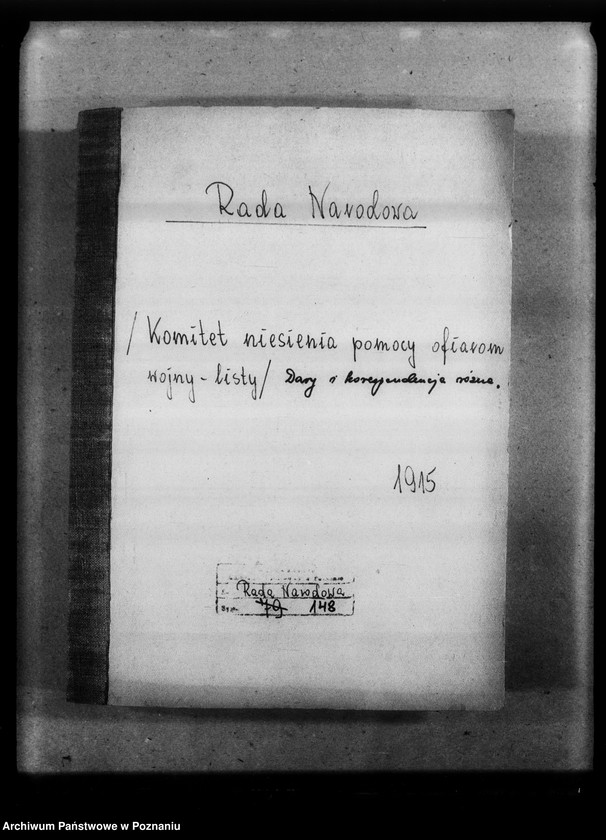 Rada Narodowa
/Komitet niesienia pomocy ofiarom
wojny - listy/ Dary i korespondencja różna.
1915
Rada Narodowa
Sygn. 70 148
Archiwum Państwowe w Poznaniu